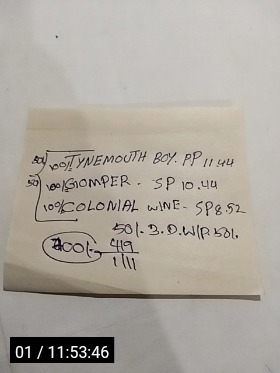 50/ 100/- TYNEMOUTH BOY. PP 11.44
50/ 100/- GOMPER - SP 10.44
100/- COLONIAL WINE - SP 8.52
50/. 3. D. W/P. 50/.
400/-
419
1/11
01 / 11:53:46